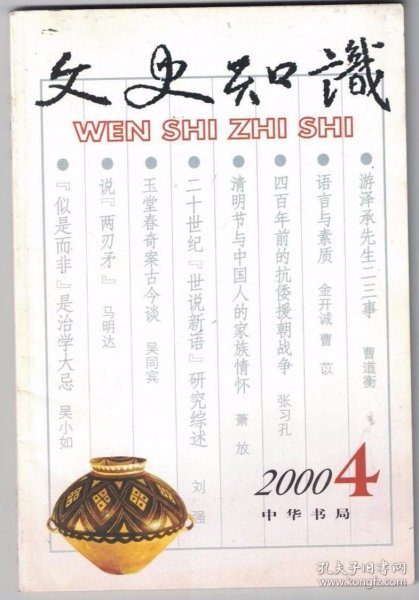 文史知識
WEN SHI ZHI SHI
游泽承先生二三事 曹道衡
语言与素质 金开诚 曹苡
四百年前的抗倭援朝战争 张习孔
清明节与中国人的家族情怀 萧放
二十世纪『世说新语』研究综述 刘强
玉堂春奇案古今谈 吴同宾
说『两刃矛』 马明达
『似是而非』是治学大忌 吴小如
2000 4
中华书局
孔夫子旧书网